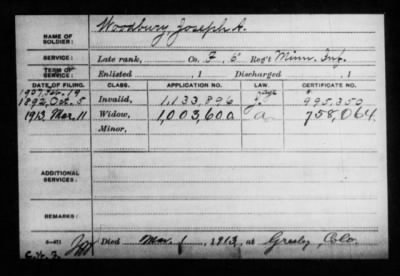 NAME OF SOLDIER: Woodbury, Joseph A.
SERVICE: Late rank, Co. F, 6 Reg't Minn. Inf.
TERM OF SERVICE: Enlisted , 1 Discharged , 1
DATE OF FILING. CLASS. APPLICATION NO. LAW. CERTIFICATE NO.
1907, Feb. 19
1892, Oct. 5 Invalid, 1,133,896 995,350
1913 Mar. 11 Widow, 1,003,600 a 758,064
Minor,
ADDITIONAL SERVICES:
REMARKS:
Died Mar. 1, 1913, at Greeley, Colo.